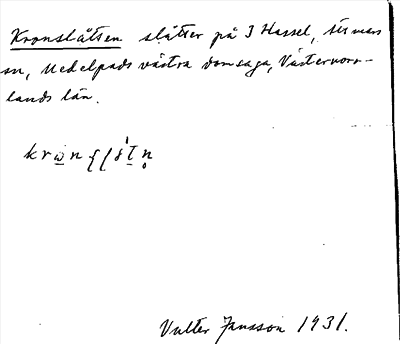 Kronslåtten slåtter på 3 Hassel,
sn, Medelpads västra domsaga, Västernorr-
lands län.
Valter Jansson 1931.